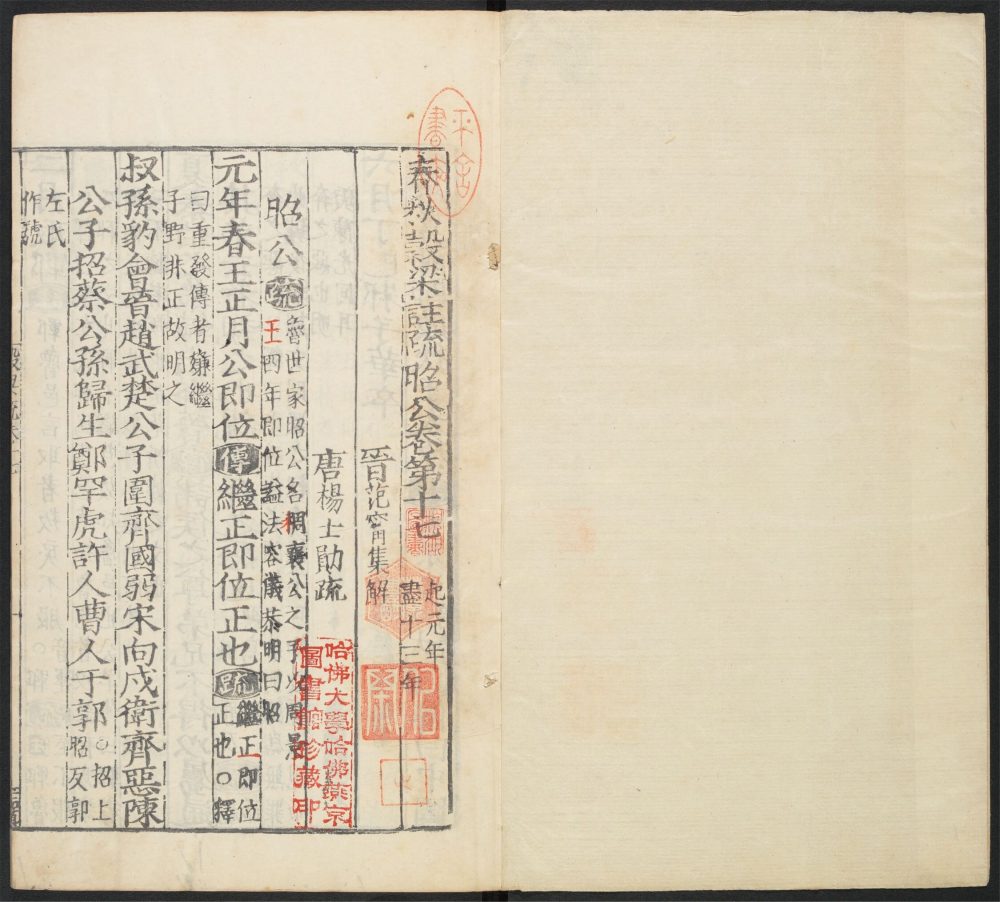 春秋穀梁註疏昭公卷第十七 起元年
盡十三年
晉范甯集解
唐楊士勛疏
昭公疏魯世家昭公名稠襄公之子以周景
王四年即位謚法容儀恭明曰昭
元年春王正月公即位傳繼正即位正也疏繼正即位
正也○釋
曰重發傳者嫌繼
子野非正故明之
叔孫豹會晉趙武楚公子圍齊國弱宋向戌衛齊惡陳
公子招蔡公孫歸生鄭罕虎許人曹人于郭○招上
昭反郭
左氏
作虢
哈佛大學哈佛燕京
圖書館珍藏印